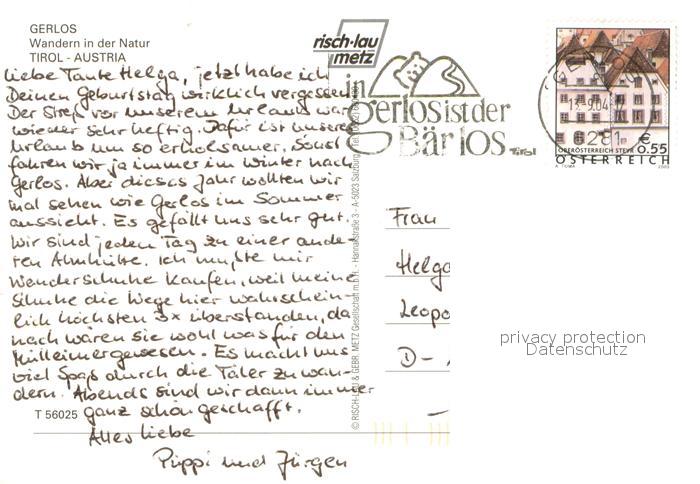 GERLOS
Wandern in der Natur
TIROL - AUSTRIA
Liebe Tante Helga, jetzt habe ich
Deinen Geburtstag wirklich vergessen.
Der Streß vor unserem Urlaub war
wieder sehr heftig. Dafür ist unser
Urlaub um so erholsamer. Sonst
fahren wir ja immer im Winter nach
Gerlos. Aber dieses Jahr wollten wir
mal sehen wie Gerlos im Sommer
aussieht. Es gefällt uns sehr gut.
Wir sind jeden Tag zu einer ande-
ren Almhütte. Ich mußte mir
Wanderschuhe kaufen, weil meine
Schuhe die Wege hier wahrschein-
lich höchsten 3x überstanden, da-
nach wären sie wohl was für den
Mülleimer gewesen. Es macht uns
viel Spaß durch die Täler zu wan-
dern. Abends sind wir dann immer
ganz schön geschafft.
Alles liebe
Püppi und Jürgen
T 56025
© RISCH-LAU & GEBR. METZ Gesellschaft m.b.H. - Hannakstraße 3 - A-5023 Salzburg
risch-lau
metz
in
gerlos ist der
Bär los
Tirol
9.04
6281
€ 0.55
OBERÖSTERREICH STEYR
ÖSTERREICH
A. TUMA 2003
Frau
Helga
Leopo
D-
privacy protection
Datenschutz